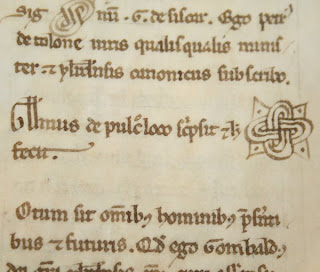 sig nu̅. G. de siscar. Ego petr᷒
de tolone iuris qualisqualis minis
ter ⁊ ylerdensis canonicus subscribo.
Guillmus de pulcͦ loco sc̅psit ⁊ h̅
fecit.
Notum sit omib᷒ hominib᷒ p̅senti
bus ⁊ futuris. Qd̅ ego Gombald᷒